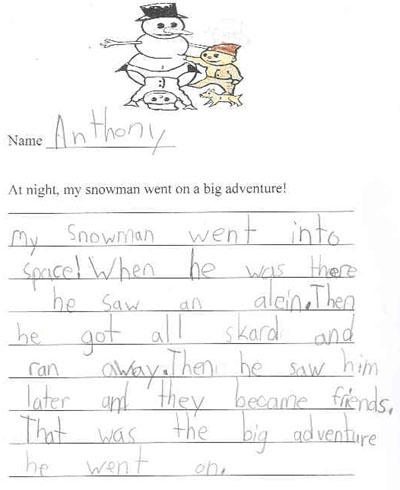 Name Anthony
At night, my snowman went on a big adventure!
My snowman went into
space! When he was there
he saw an alein. Then
he got all skard and
ran away. Then he saw him
later and they became friends.
That was the big adventure
he went on.